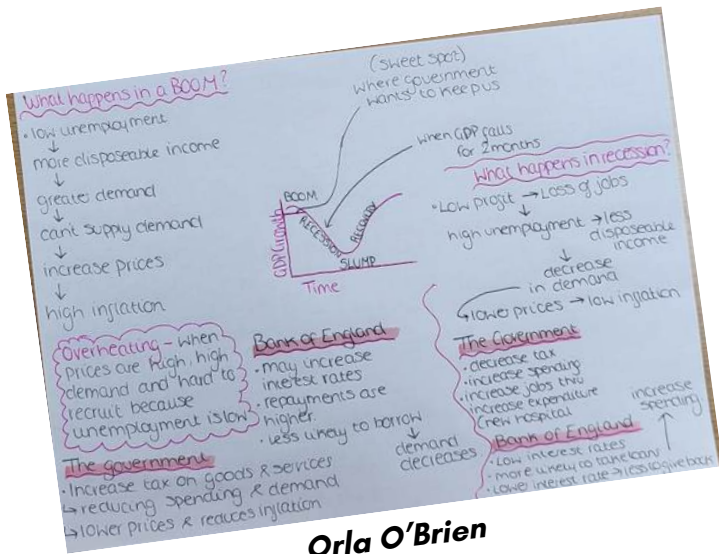 What happens in a BOOM?
• low unemployment
↓
more disposeable income
↓
greater demand
↓
can't supply demand
↓
increase prices
↓
high inflation
Overheating - when
prices are high, high
demand and hard to
recruit because
unemployment is low
The government
• Increase tax on goods & services
↳ reducing spending & demand
↳ lower prices & reduces inflation
(sweet spot)
where government
wants to keep us
when GDP falls
for 2 months
GDP Growth
BOOM
RECESSION
SLUMP
RECOVERY
Time
Bank of England
• may increase
interest rates
• repayments are
higher
• Less likely to borrow
↓
demand
decreases
What happens in recession?
• Low profit → Loss of jobs
↓
high unemployment → less
disposeable
income
↓
decrease
in demand
↳ lower prices → low inflation
The Government
• decrease tax
• increase spending
• increase jobs thru
increase expenditure
(new hospital
Bank of England
• Low interest rates
• more likely to take loans
• Lower interest rate → less to give back
increase
spending
Orla O'Brien